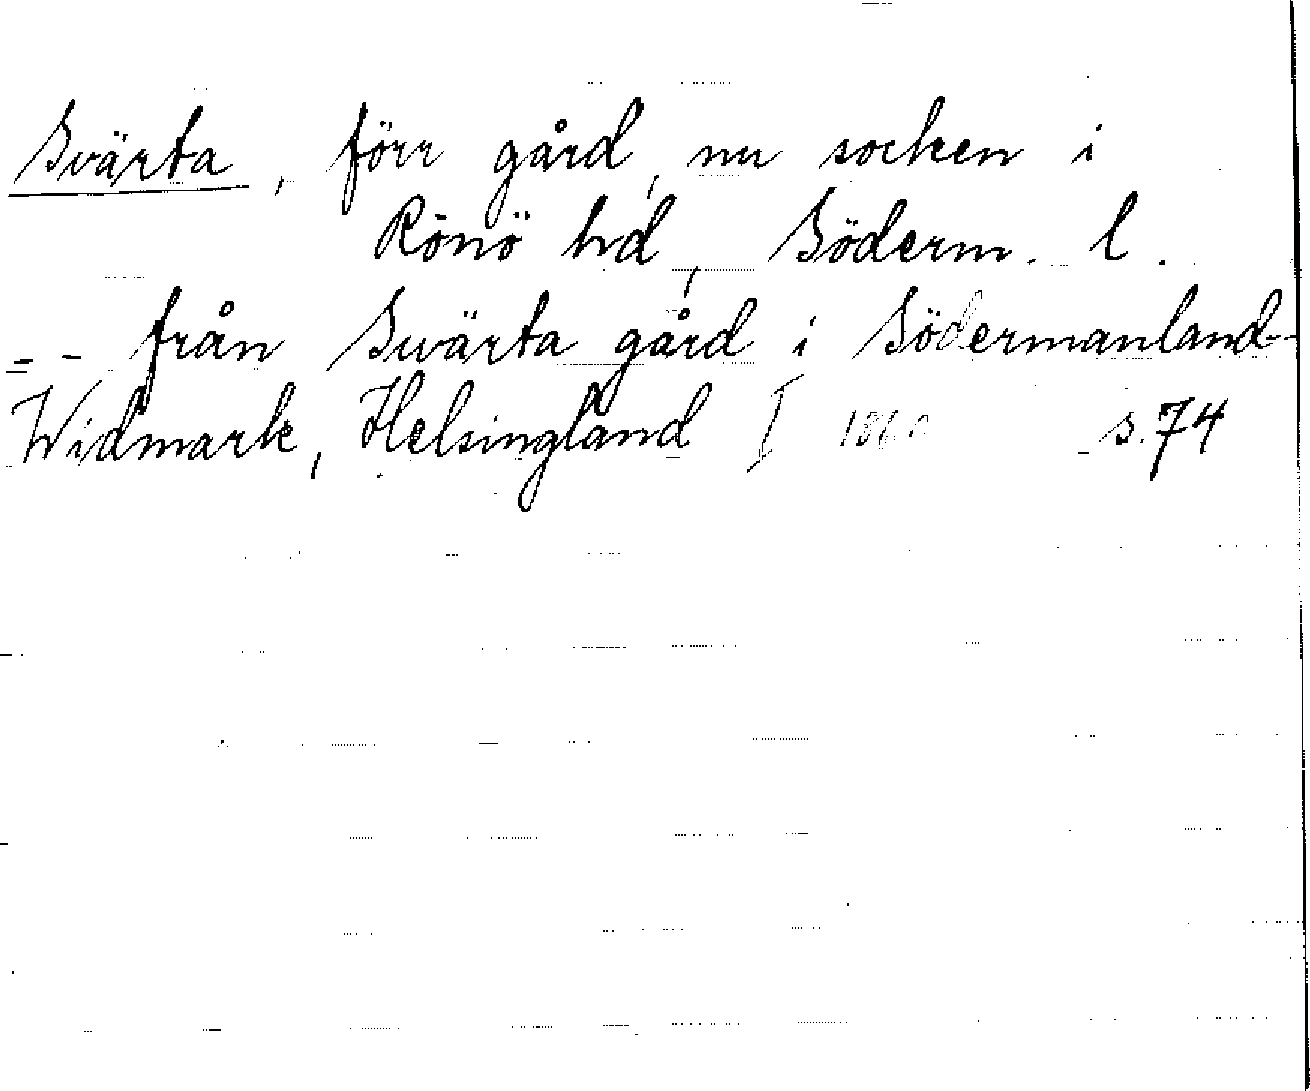 Svärta, förr gård, nu socken i
Rönö hd, Söderm. l.
-- från Swärta gård i Södermanland --
Widmark, Helsingland I 1860 s. 74